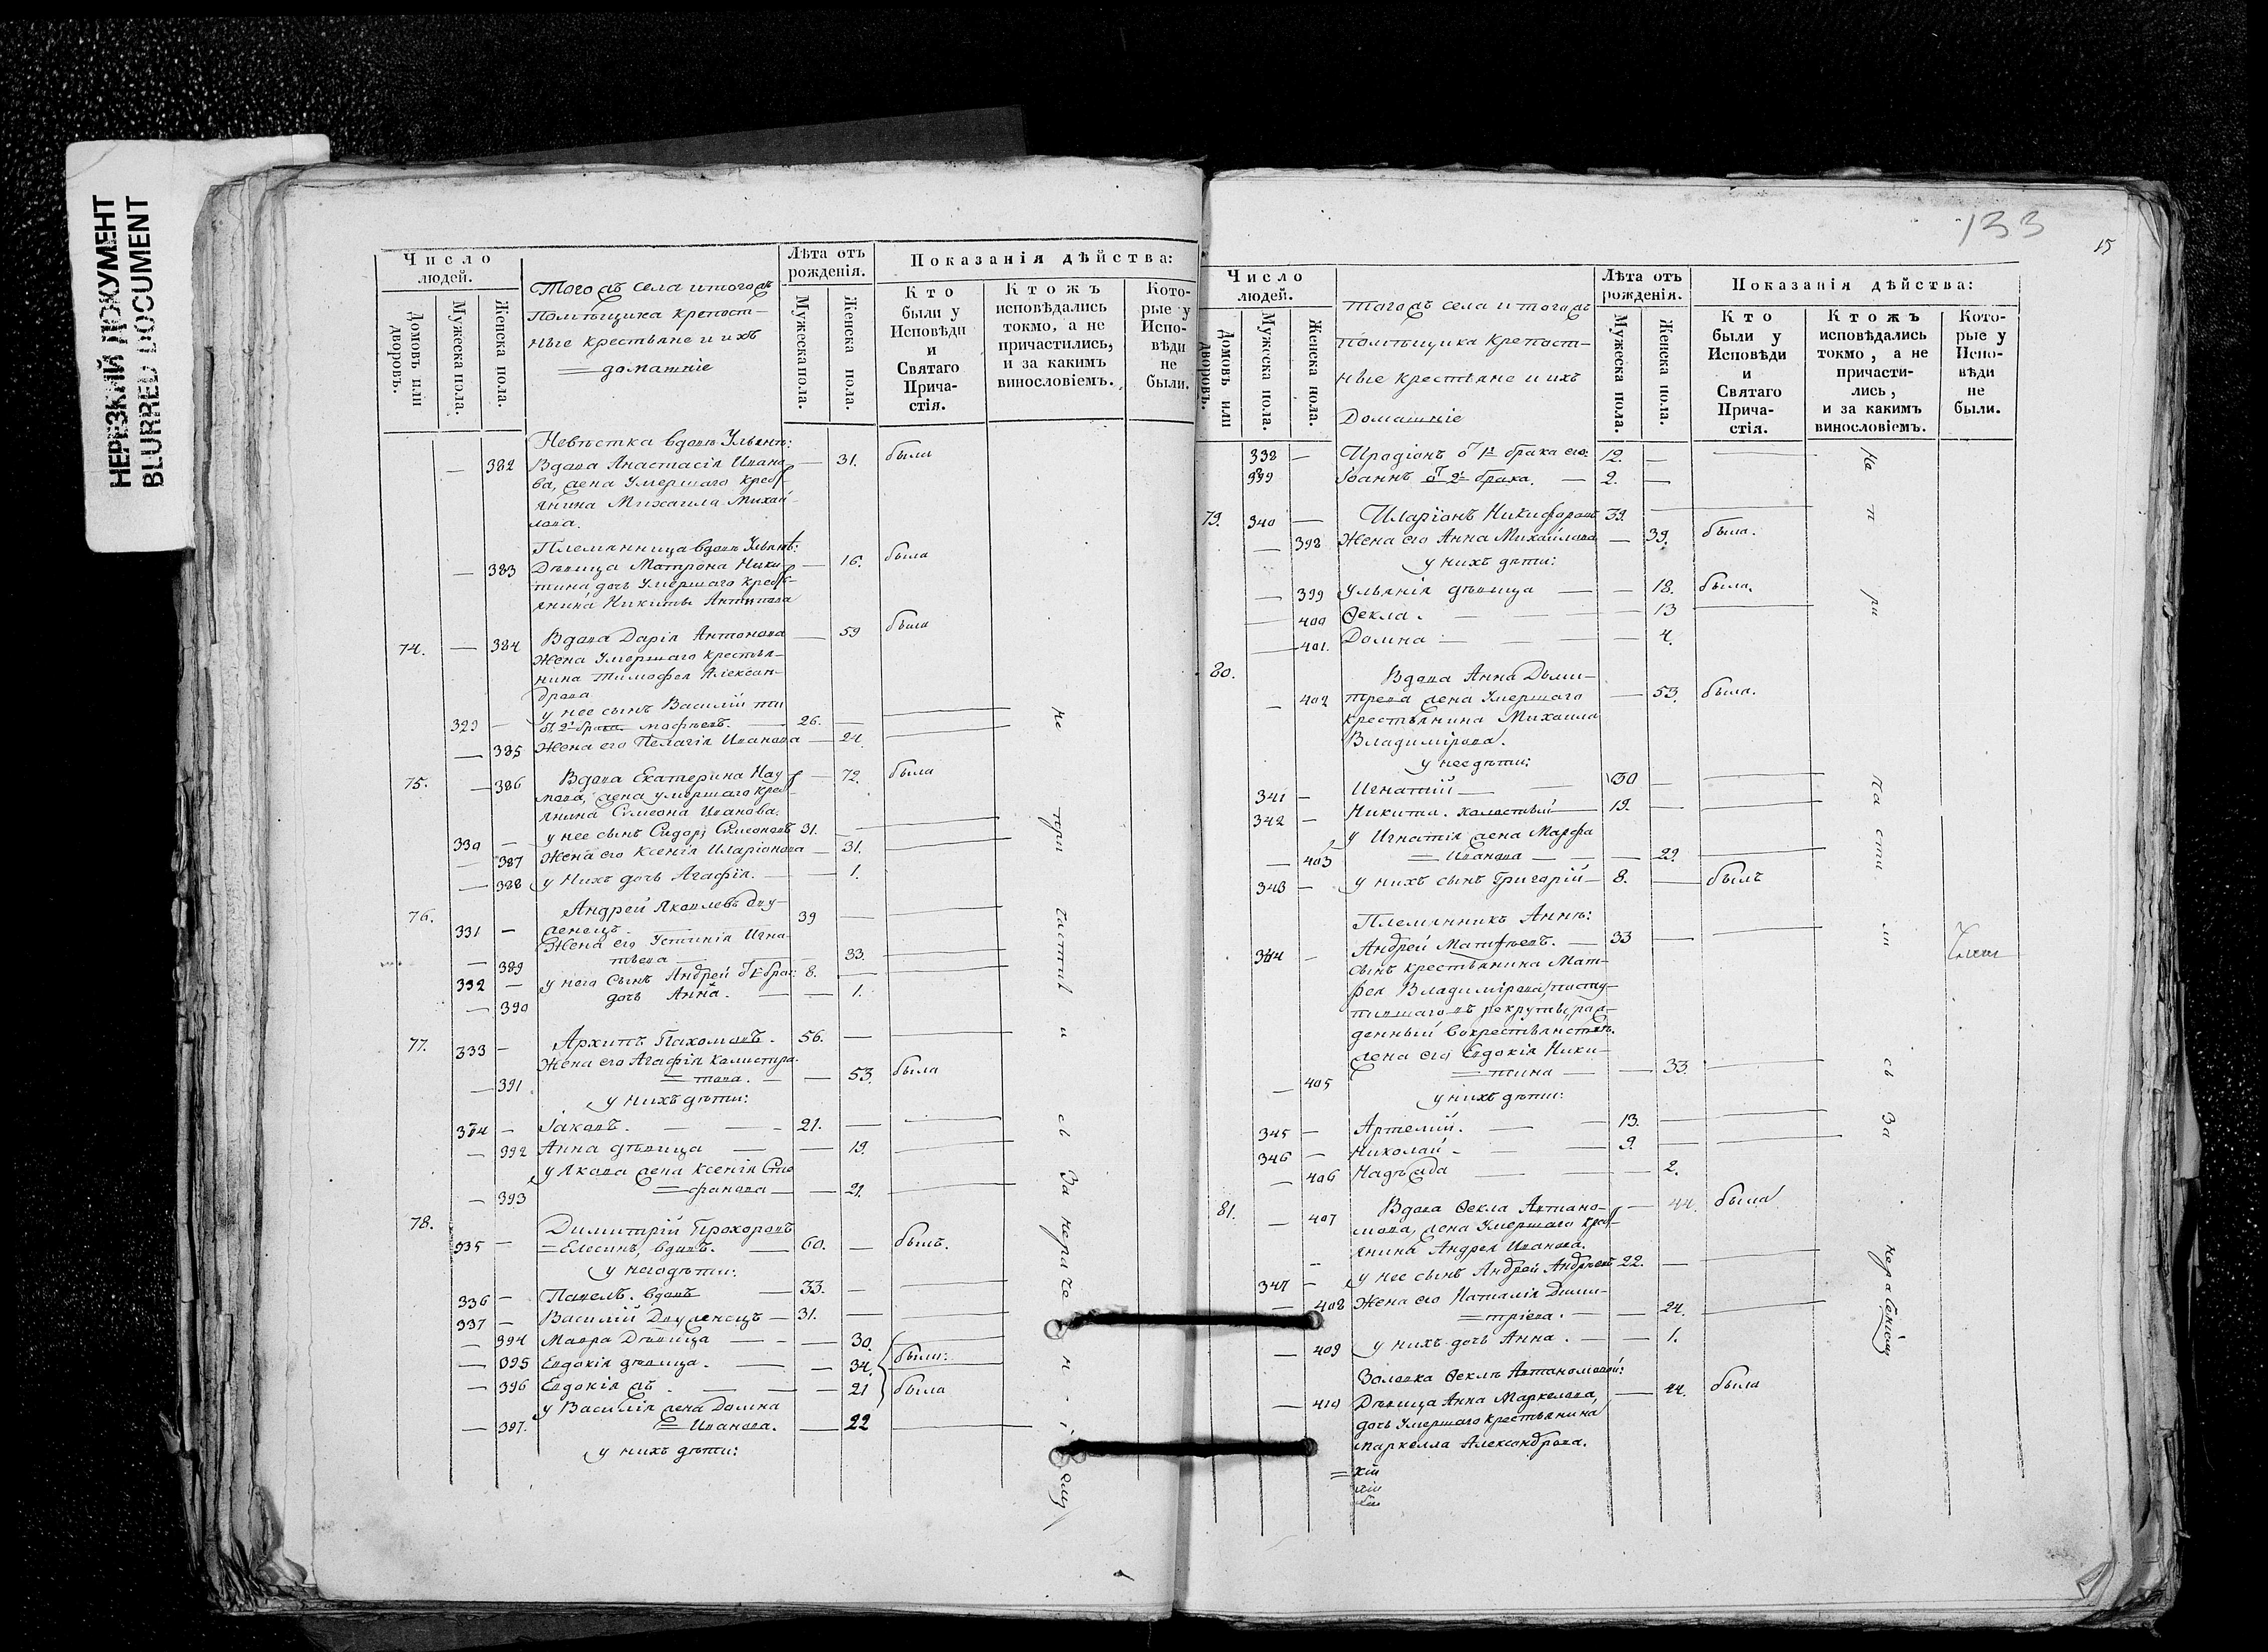 НЕРЕЗКИЙ ДОКУМЕНТ
BLURRED DOCUMENT
Число людей.
Домовъ или дворовъ.
Мужеска пола.
Женска пола.
Тогожъ села и тогожъ
Помѣщика крепост-
ные крестьяне и ихъ
домашніе
Лѣта отъ рожденія.
Мужеска пола.
Женска пола.
Показанія дѣйства:
Кто были у Исповѣди и Святаго Прича-стія.
Ктожъ исповѣдались токмо, а не причастились, и за какимъ винословіемъ.
Кото-рые у Испо-вѣди не были.
Невѣстка вдовы Ульяны:
— 382 Вдова Анастасія Ивано- — 31. была
ва, жена умершаго крес-
янина Михаила Михай-
лова.
Племянница вдовы Ульяны:
— 383 Дѣвица Матрона Ники- — 16. была
тина дочь умершаго крест-
янина Никиты Антипова
74. — 384 Вдова Дарія Антонова — 59 была
жена умершаго крестья-
нина Тимофея Алексан-
дрова
у нее сынъ Василій Ти
329 — отъ 2 брака мофѣевъ. — 26. —
— 385 Жена его Пелагія Иванова — 24.
75. — 386 Вдова Екатерина Нау — 72. была
мова, жена умершаго крес-
янина Симеона Иванова.
330 — у нее сынъ Сидоръ Симеоновъ 31. —
— 387 Жена его Ксенія Иларіонова — 31.
— 388 у нихъ дочь Агафія. — — 1.
76. 331 — Андрей Яковлевъ дву- 39 —
женецъ. —
Жена его Устинія Игна-
— 389 тьева — — 33.
332 — у него сынъ Андрей отъ 1 брак: 8. —
— 390 дочь Анна. — — 1.
77. 333 — Архипъ Пахомовъ. 56. —
Жена его Агафія Калистра-
— 391 това. — — 53. была
у нихъ дѣти:
334 — Іаковъ. — — 21. —
— 392 Анна дѣвица — — 19.
у Якова жена Ксенія Сте
— 393 фанова — — 21.
78. Димитрій Прохоровъ
335 — Елесинъ, вдовъ. — 60. — былъ.
у него дѣти:
336 — Павелъ. вдовъ — 33. —
337 — Василій Двуженецъ — 31. —
— 394 Мавра Дѣвица — — — 30.
— 395 Евдокія дѣвица. — — 34. были:
— 396 Евдокія жъ. — — — 21 была
у Василія жена Домна
— 397. Иванова. — 22
у нихъ дѣти:
не причастил и сь За нераченіемъ
133
15
Число людей.
Домовъ или дворовъ.
Мужеска пола.
Женска пола.
Тогожъ села и тогожъ
помѣщика крепост-
ные крестьяне и ихъ
Домашніе
Лѣта отъ рожденія.
Мужеска пола.
Женска пола.
Показанія дѣйства:
Кто были у Исповѣди и Святаго Прича-стія.
Ктожъ исповѣдались токмо, а не причасти-лись, и за какимъ винословіемъ.
Кото-рые у Испо-вѣди не были.
338 — Иродіонъ отъ 1 брака его: 12. —
339 Іоаннъ отъ 2 брака. — 2. —
79. 340 — Иларіонъ Никифоровъ 39.
— 398 Жена его Анна Михайлова — 39. была.
у нихъ дѣти:
— 399 Ульянія дѣвица — — 18. была.
— 400 Ѳекла. — — — 13
— 401. Домна — — — 4.
80. Вдова Анна Дьми-
— 402 трева жена умершаго — 53. была.
крестьянина Михаила
Владимірова.
у нее дѣти:
341 — Игнатій — 30 —
342 — Никита. холостый — 19. —
у Игнатія жена Марфа
— 403 Иванова — — — 29.
343 — у нихъ сынъ Григорій — 8. — былъ
Племянникъ Анны:
344 — Андрей Матѳѣевъ. — 33 —
сынъ крестьянина Мат-
фея Владимірова, посту-
пившаго въ рекруты, рож-
денный въ крестьянствѣ.
жена его Евдокія Ники-
— 405 тина — — 33.
у нихъ дѣти:
345 — Артемій. — — 13. —
346 — Николай — — 9. —
— 406 Надѣжда — — 2.
81. — 407 Вдова Ѳекла Автано- — 44. была
мова, жена умершаго крес-
янина Андрея Иванова.
347 — у нее сынъ Андрей Андрѣевъ 22. —
— 408 Жена его Наталія Дими-
тріева. — — 24.
— 409 у нихъ дочь Анна. — — 1.
Золовка Ѳеклы Автаномовой:
— 410 Дѣвица Анна Маркелова, — 44. была
дочь умершаго крестьянина
Маркелла Александрова.
Не при части ли сь За нераченіемъ